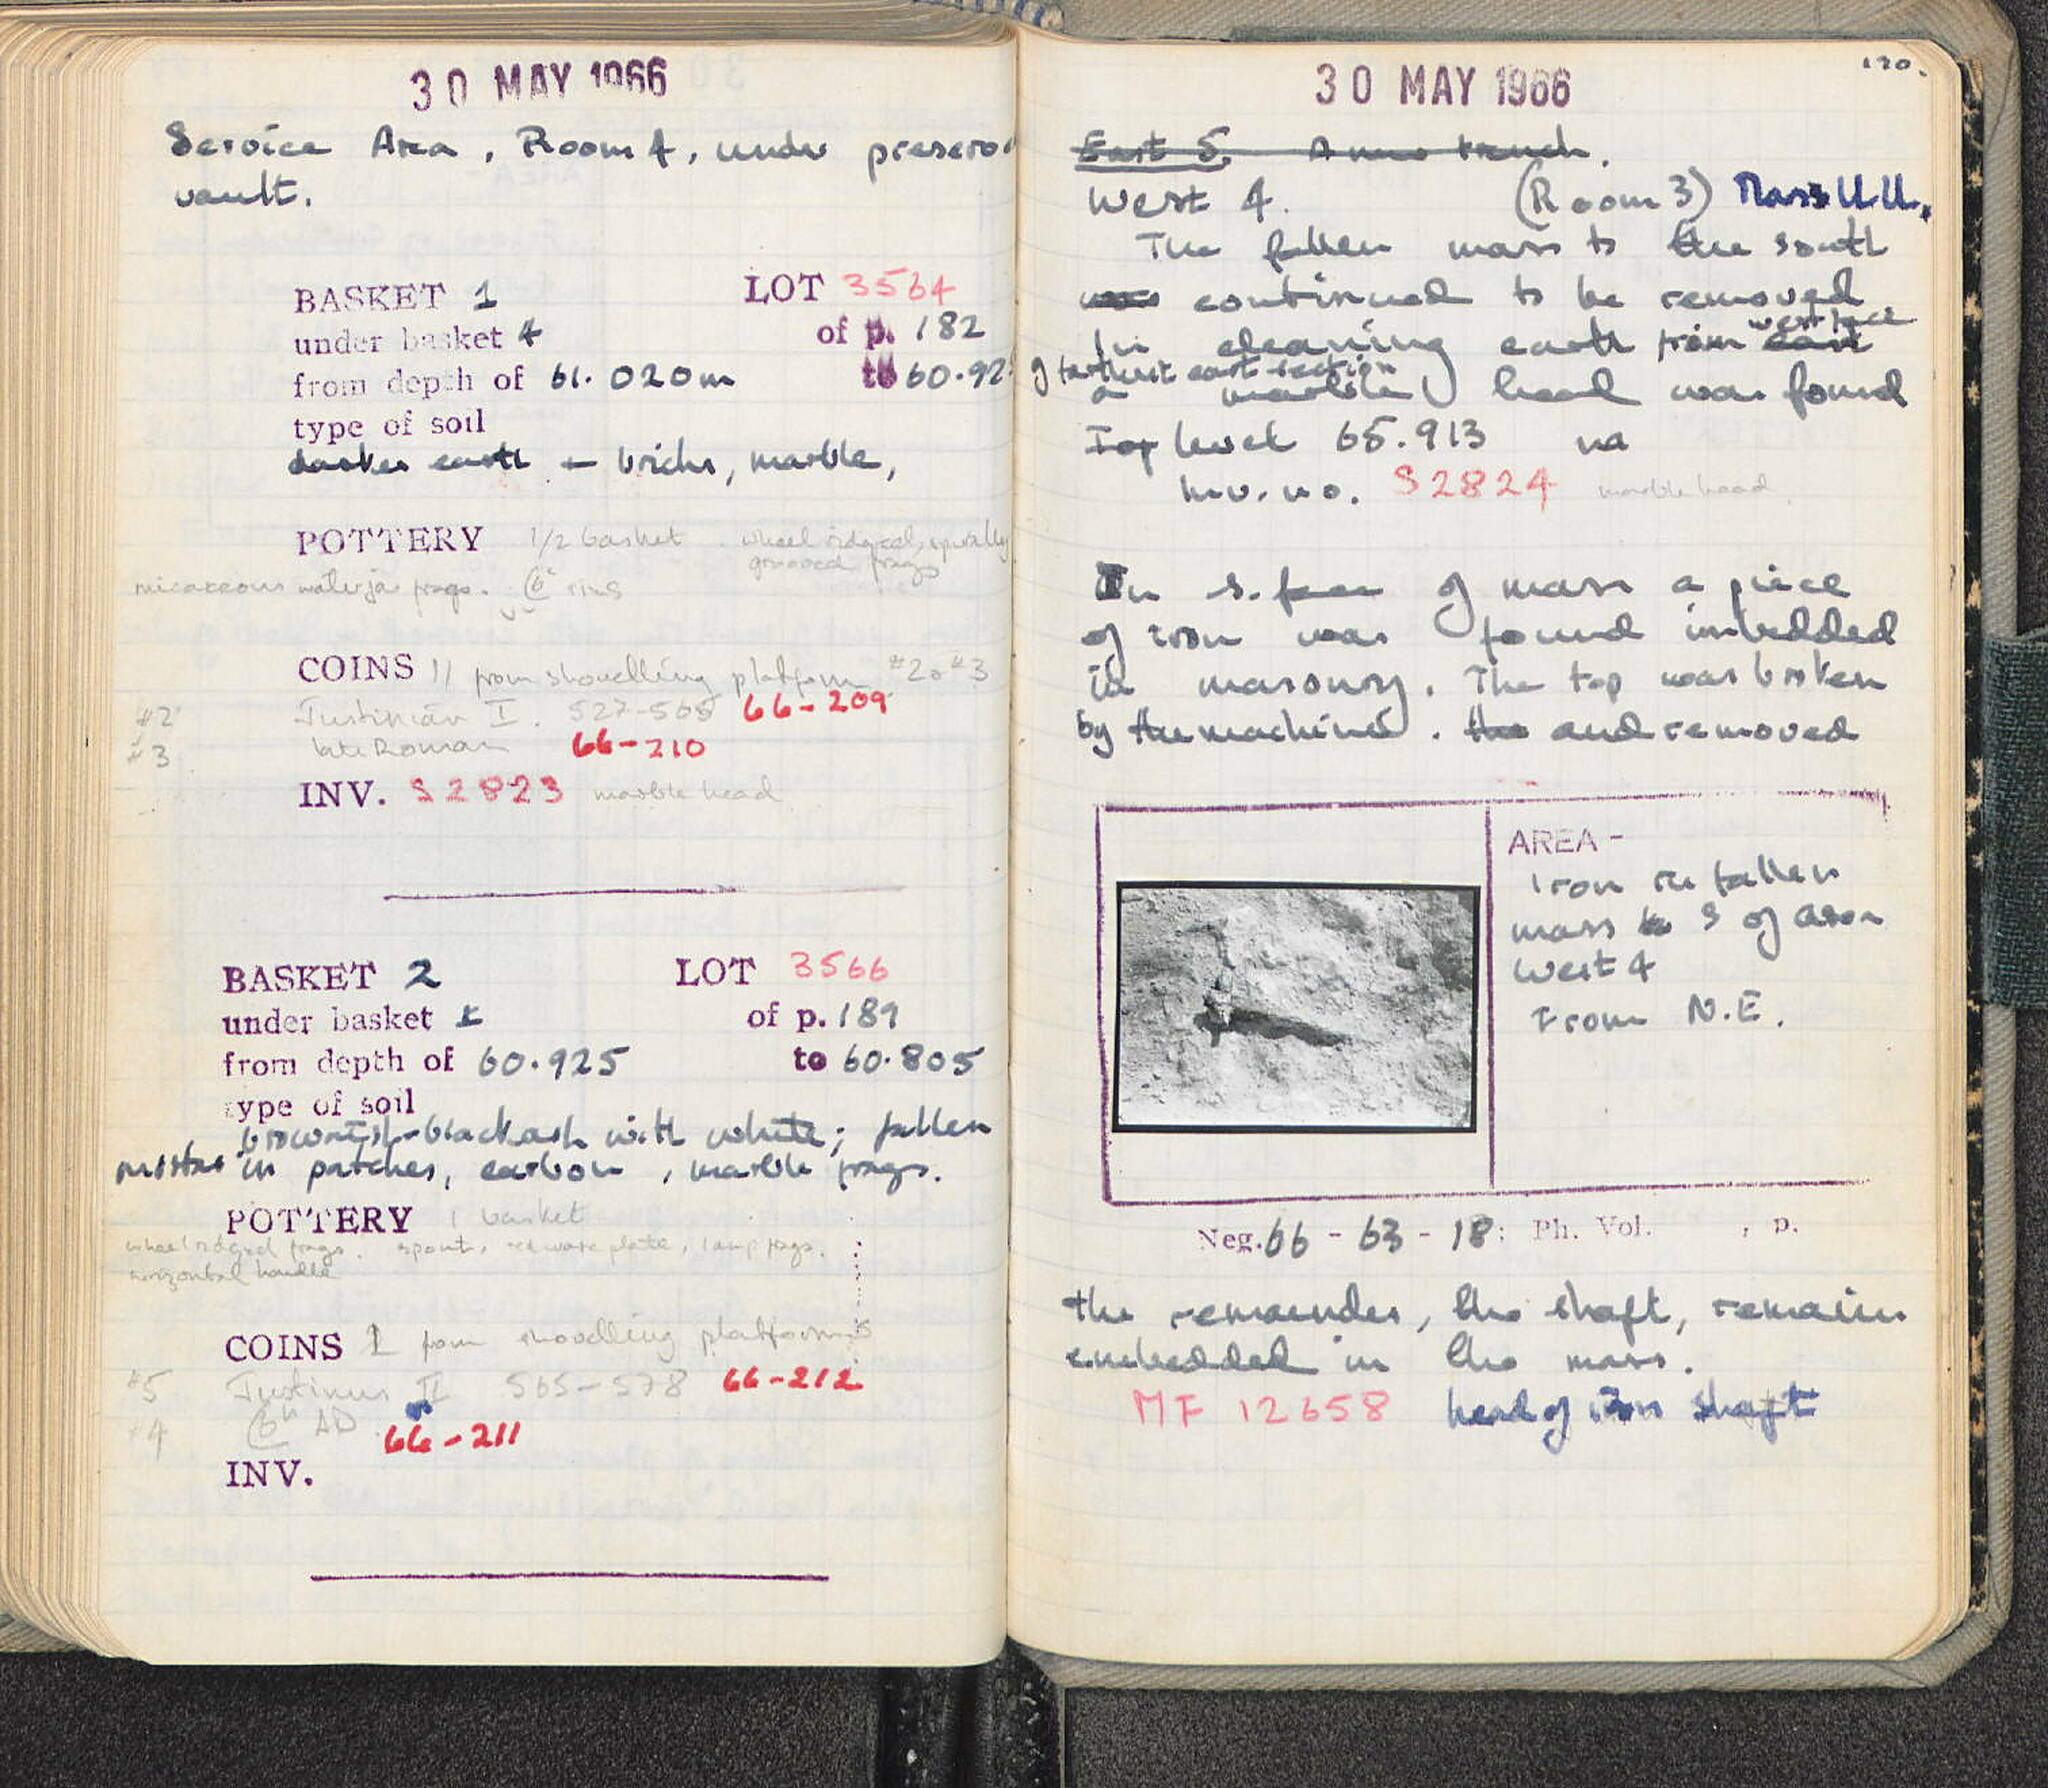 30 MAY 1966
Service Area, Room 4, under preserv
vault.
BASKET 1 LOT 3564
under basket 4 of p. 182
from depth of 61.020m to 60.92
type of soil
darker earth + bricks, marble,
POTTERY 1/2 basket. wheel ridged, spirally
grooved frags
micaceous waterjar frags. ring
COINS 11 from shovelling platform #2 #3
#2 Justinian I. 527-565 66-209
#3 late Roman 66-210
INV. S2823 marble head
BASKET 2 LOT 3566
under basket 1 of p. 189
from depth of 60.925 to 60.805
type of soil
brownish-black ash with white; fallen
mortar in patches, carbon, marble frags.
POTTERY 1 basket
wheel ridged frags. spout, red ware plate, lamp frags.
horizontal handle
COINS from shovelling platform
#5 Justinus II 565-578 66-212
#4 6th AD 66-211
INV.
120.
30 MAY 1966
East 5. trench.
West 4. (Room 3) Mass U.U.
The fallen mass to the south
was continued to be removed
In cleaning earth from east west face
of farthest east section
a marble head was found
Top level 65.913 m
Inv. no. S2824 marble head.
In S. face of mass a piece
of iron was found imbedded
in masonry. The top was broken
by the machine. the and removed
AREA -
Iron in fallen
mass to S of
West 4
From N.E.
Neg. 66 - 63 - 18: Ph. Vol. , p.
the remainder, the shaft, remains
embedded in the mass.
MF 12658 head of iron shaft